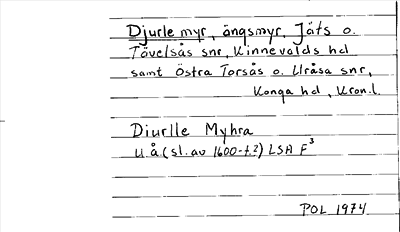 Djurle myr, ängsmyr, Jäts o.
Tävelsås snr, Kinnevalds hd
samt Östra Torsås o. Uråsa snr,
Konga hd, Kron.l.
Diurlle Myhra
u.å (sl. av 1600-t.?) LSA F³
POL 1974